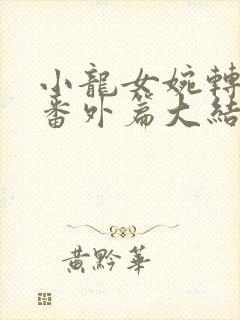 小龍女婉轉
番外篇大結
黃黔華